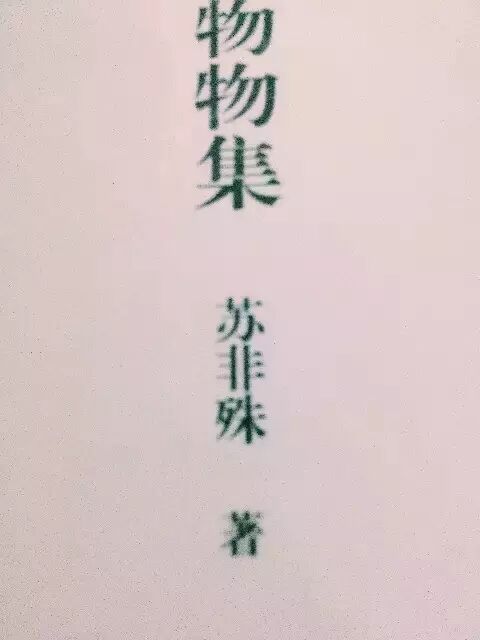 物物集
苏非殊
著